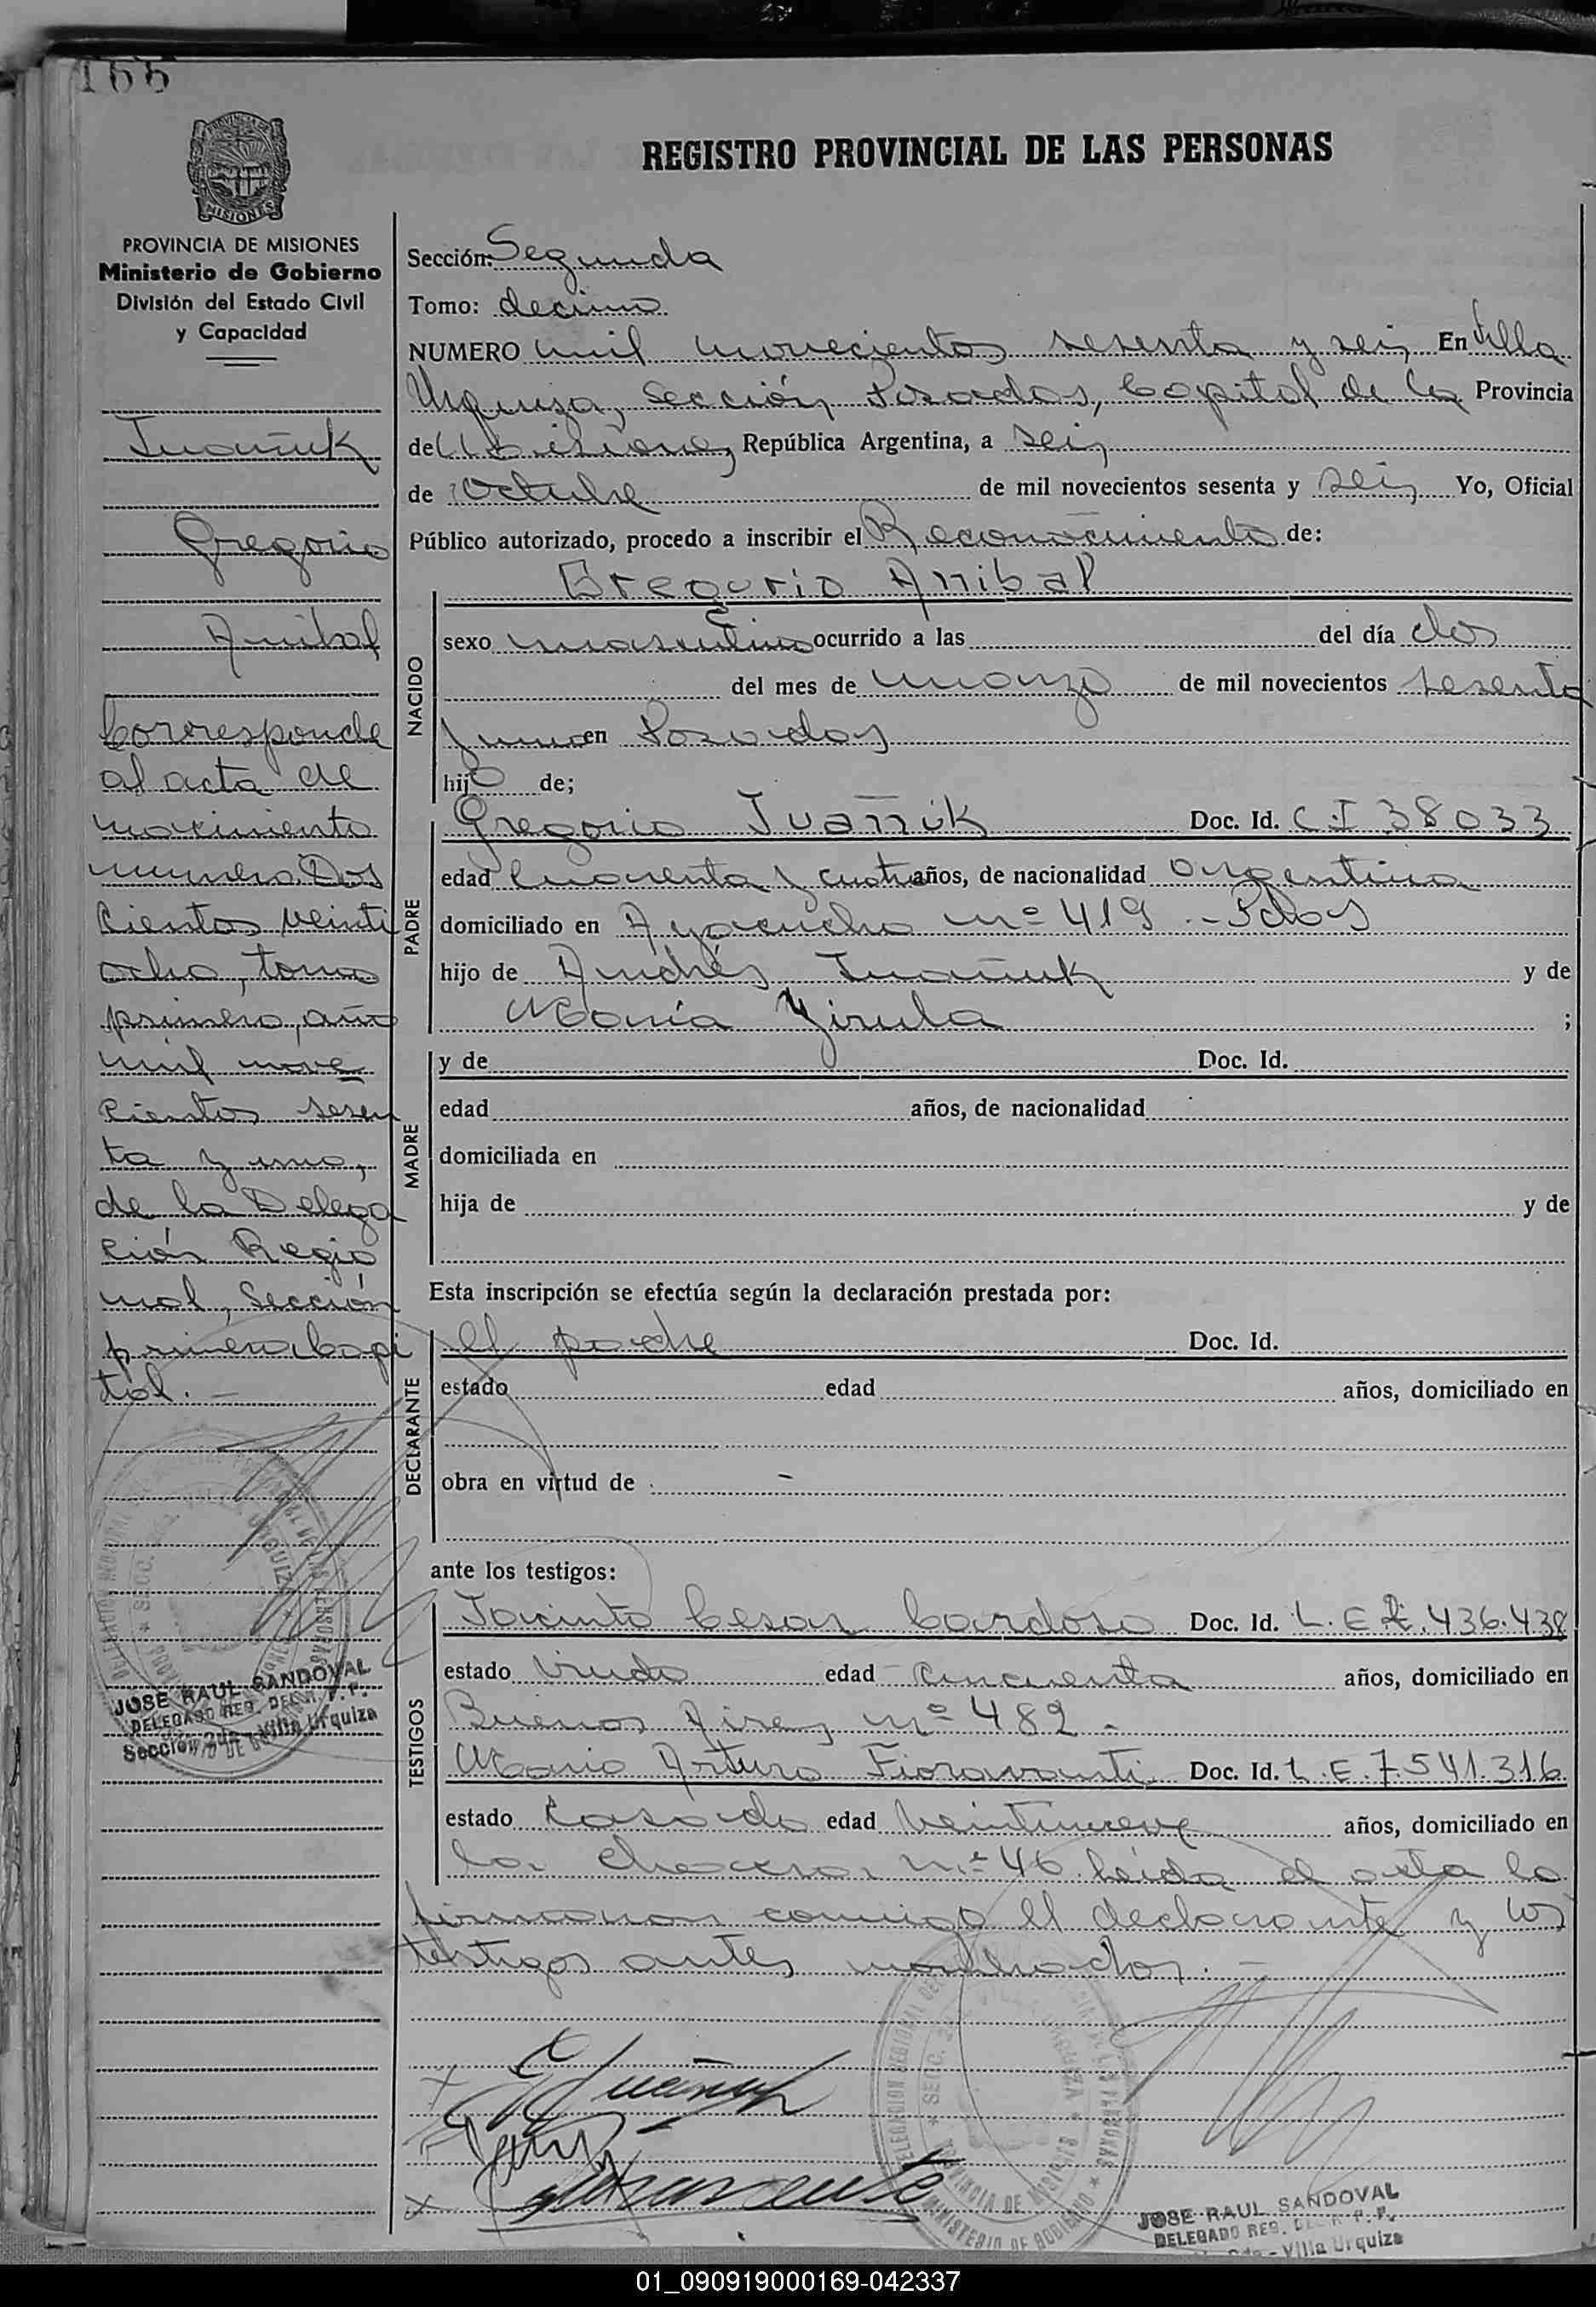 166
REGISTRO PROVINCIAL DE LAS PERSONAS
MISIONES
PROVINCIA DE MISIONES
Ministerio de Gobierno
División del Estado Civil
y Capacidad
Juañuk
Gregorio
Anibal
Corresponde
al acta de
nacimiento
numero Dos
cientos veinti
ocho, tomo
primero, año
mil nove
cientos sesen
ta y uno,
de la Delega
ción Regio
nal, Sección
primera Capi
tal. -
JOSE RAUL SANDOVAL
DELEGADO REG. DEL R. P. P.
Sección 2da - Villa Urquiza
Sección: Segunda
Tomo: decimo
NUMERO mil novecientos sesenta y seis En Villa
Urquiza, Sección Posadas, Capital de la Provincia
de Misiones, República Argentina, a seis
de Octubre de mil novecientos sesenta y seis Yo, Oficial
Público autorizado, procedo a inscribir el Reconocimiento de:
NACIDO
Gregorio Anibal
sexo masculino ocurrido a las del día dos
del mes de marzo de mil novecientos sesenta
y uno en Posadas
hijo de;
PADRE
Gregorio Juañuk Doc. Id. C.I 38033
edad cuarenta y cuatro años, de nacionalidad argentina
domiciliado en Ayacucho nº 419 - Pdas
hijo de Andrés Juañuk y de
María Yirula ;
MADRE
y de Doc. Id.
edad años, de nacionalidad
domiciliada en
hija de y de
Esta inscripción se efectúa según la declaración prestada por:
DECLARANTE
el padre Doc. Id.
estado edad años, domiciliado en
obra en virtud de : -
ante los testigos:
TESTIGOS
Jacinto Cesar Cardoso Doc. Id. L.E 436.438
estado viudo edad cincuenta años, domiciliado en
Buenos Aires nº 482 -
Mario Arturo Fioravanti Doc. Id. L.E. 7.541.316
estado casado edad veintinueve años, domiciliado en
la nº 46. Leída el acta la
firmaron conmigo el declarante y los
testigos antes nombrados. -
JOSE RAUL SANDOVAL
DELEGADO REG. DEL R. P. P.
2da - Villa Urquiza
01_090919000169-042337